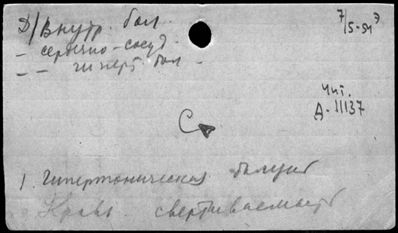 Д/Внутр. бол.
7/5-54
- сердечно-сосуд.
- - гиперт. бол -
Чит.
А-11137
С
1. Гипертоническая болезнь
Кровь свертываемость